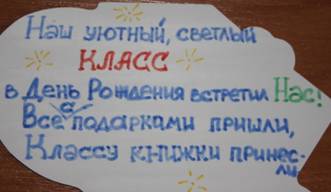 Наш уютный, светлый
КЛАСС
в День Рождения встретил Нас!
Все с подарками пришли,
Классу книжки принес-
ли.